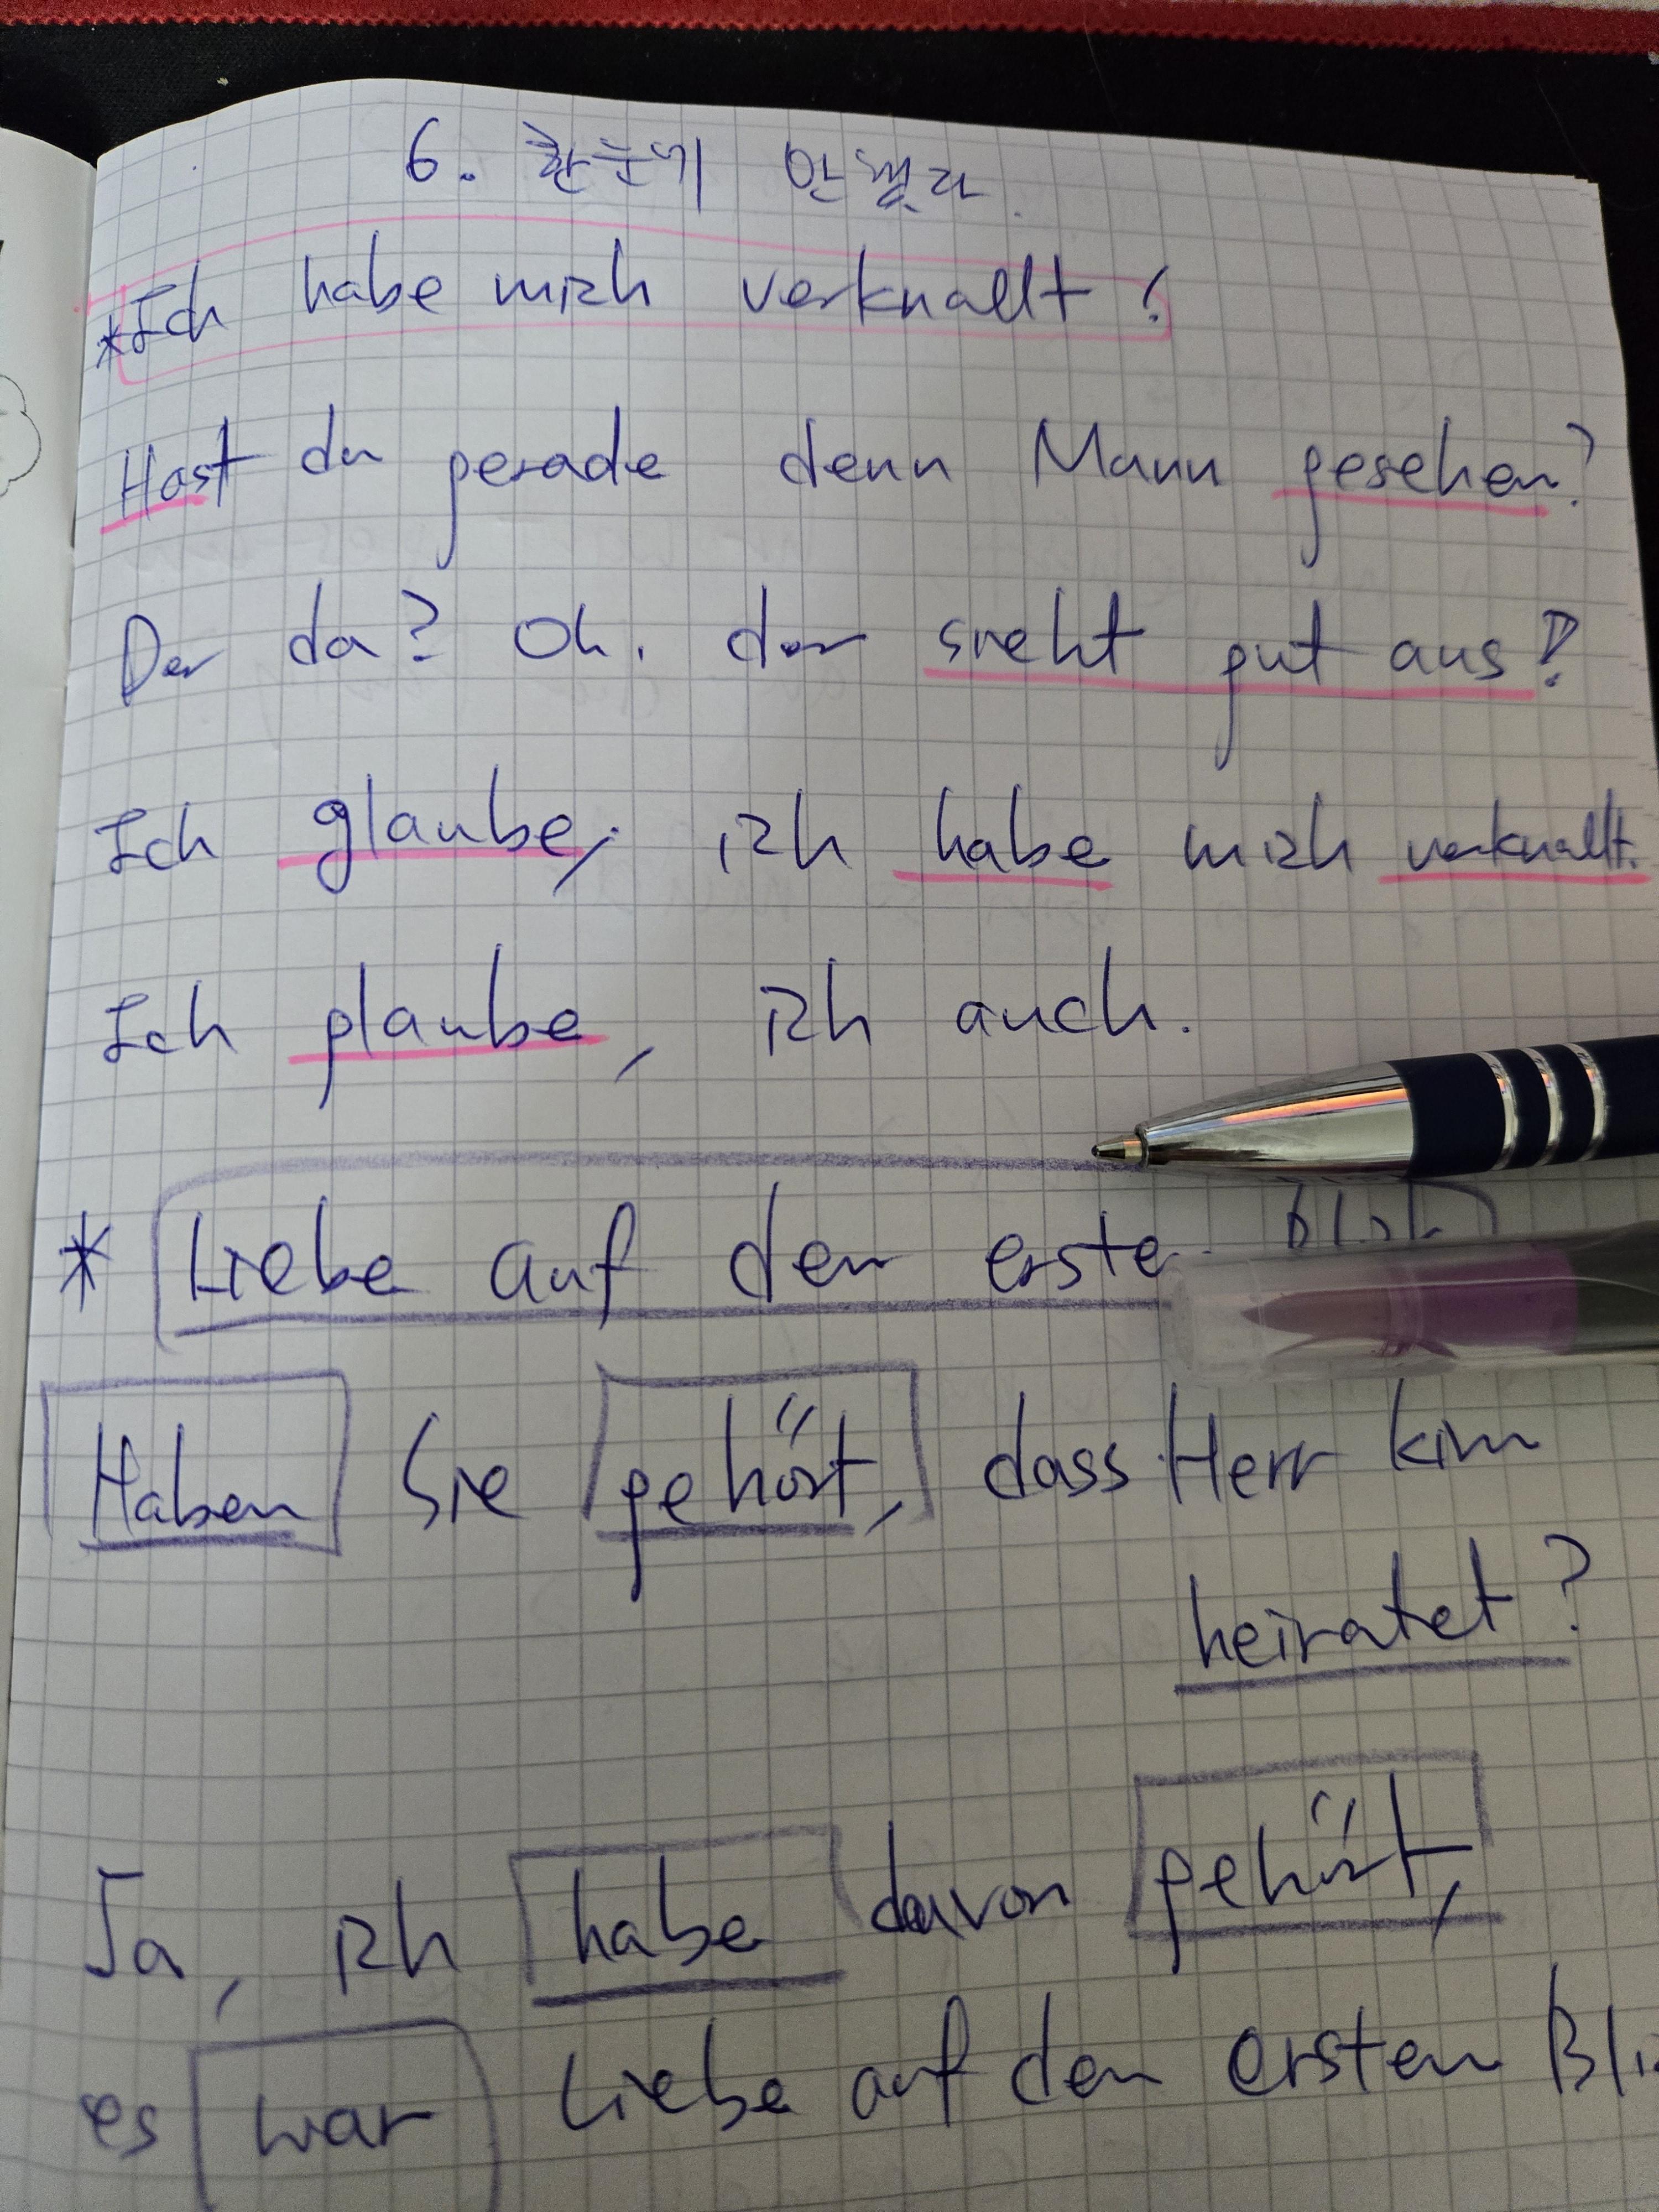 6. 한눈에 반했다.
*Ich habe mich verknallt!
Hast du gerade denn Mann gesehen?
Der da? Oh, der sieht gut aus!
Ich glaube, ich habe mich verknallt.
Ich glaube, ich auch.
* Liebe auf den ersten Blick
Haben Sie gehört, dass Herr Kim
heiratet?
Ja, ich habe davon gehört,
es war Liebe auf den ersten Bli